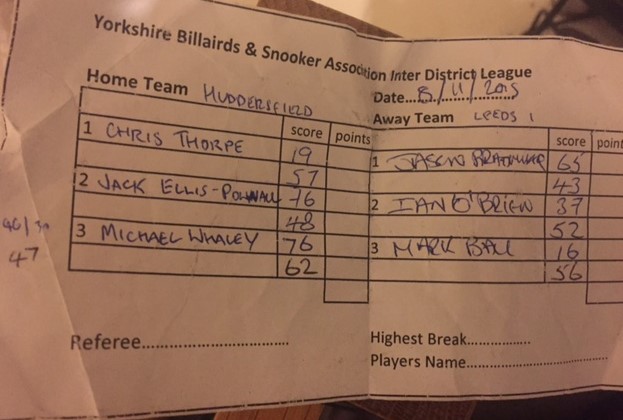 Yorkshire Billairds & Snooker Association Inter District League
Home Team HUDDERSFIELD
Date...8/11/2015
Away Team LEEDS 1
score points
1 CHRIS THORPE 19
57
2 JACK ELLIS- 76
48
3 MICHAEL WHALEY 76
62
score point
1 JASON 65
43
2 IAN O'BRIEN 37
52
3 MARK BALL 16
56
46/30
47
Referee...............................
Highest Break...............
Players Name...............................